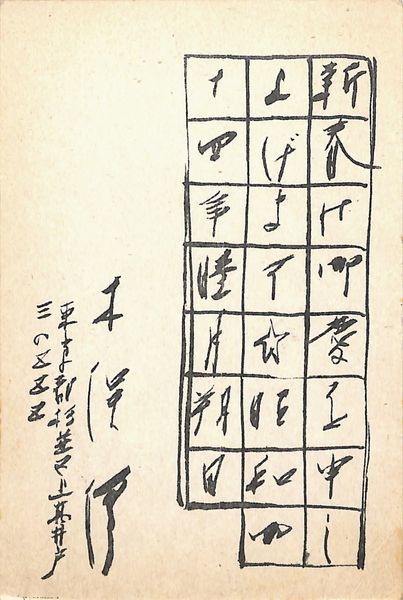 新春は御慶を申し
上げます☆昭和四
十四年睦月朔日
木俣修
東京都杉並区上高井戸
三の五五五